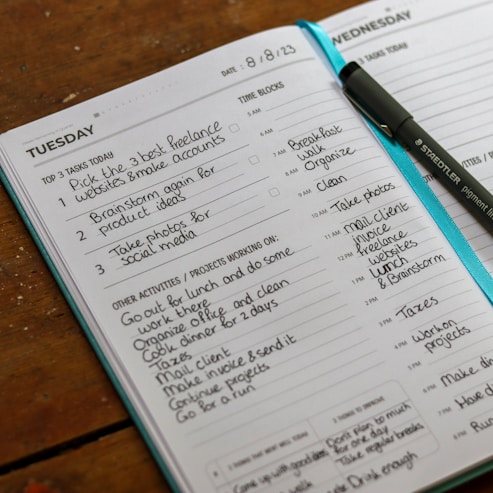 TUESDAY
DATE : 8/8/23
TOP 3 TASKS TODAY
1 Pick the 3 best freelance
websites & make accounts
2 Brainstorm again for
product ideas
3 Take photos for
social media
OTHER ACTIVITIES / PROJECTS WORKING ON:
Go out for lunch and do some
work there
Organize office and clean
Cook dinner for 2 days
Taxes
Mail client
Make invoice & send it
Continue projects
Go for a run
TIME BLOCKS
5 AM
6 AM
7 AM Breakfast
walk
8 AM Organize
9 AM clean
10 AM Take photos
11 AM mail client
invoice
12 PM freelance
websites
1 PM Lunch
& Brainstorm
2 PM
3 PM Taxes
4 PM Work on
5 PM projects
6 PM Make
7 PM Have
8 PM Run
3 THINGS THAT WENT WELL TODAY
Came up with good
3 THINGS TO IMPROVE
Don't plan to much
for one day
Take regular breaks
Drink enough
WEDNESDAY
3 TASKS TODAY
STAEDTLER
pigment